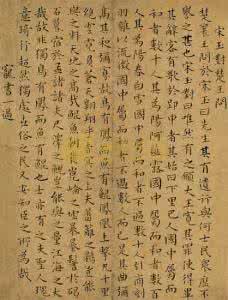 宋玉對楚王問
楚襄王問於宋玉曰先生其有遺行與何士民眾庶
不譽之甚也宋玉對曰唯然有之願大王寬其罪使得畢
其辭客有歌於郢中者其始曰下里巴人國中屬而
和者數千人其為陽阿薤露國中屬而和者數百
人其為陽春白雪國中屬而和者不過數十人引商刻
羽雜以流徵國中屬而和者不過數人而已是其曲彌
高其和彌寡故鳥有鳳而魚有鯤鳳凰上擊九千里
絕雲霓負蒼天翱翔乎杳冥之上夫藩籬之鷃豈能
與之料天地之高哉鯤魚朝發崑崙之墟暴鬐於碣
石暮宿於孟諸夫尺澤之鯢豈能與之量江海之大
哉故非獨鳥有鳳而魚有鯤也士亦有之夫聖人瑰
意琦行超然獨處世俗之民又安知臣之所為哉
寵書一過